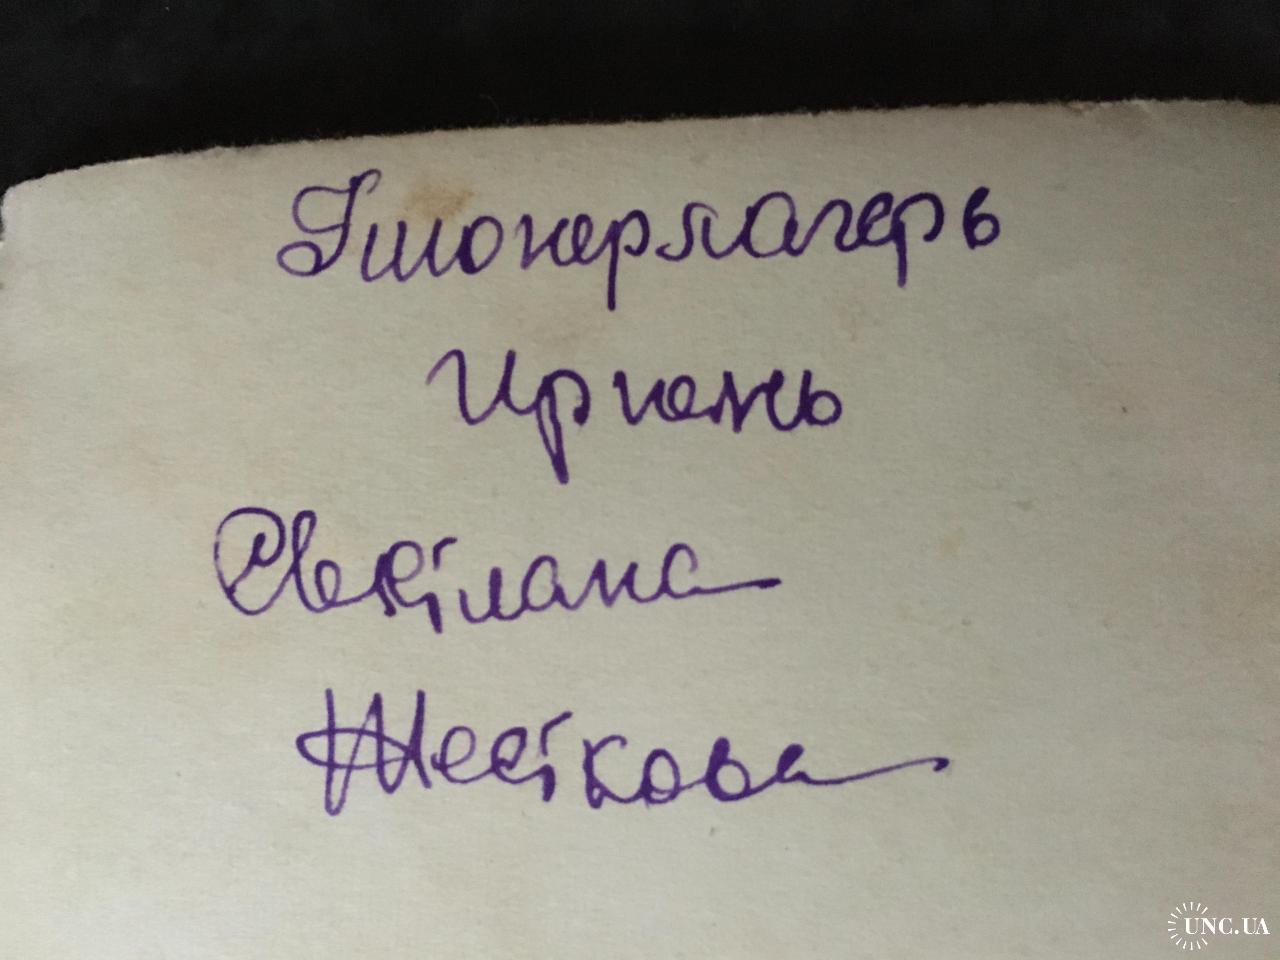 Пионерлагерь
Ирпень
Светлана
Жесткова
UNC.UA